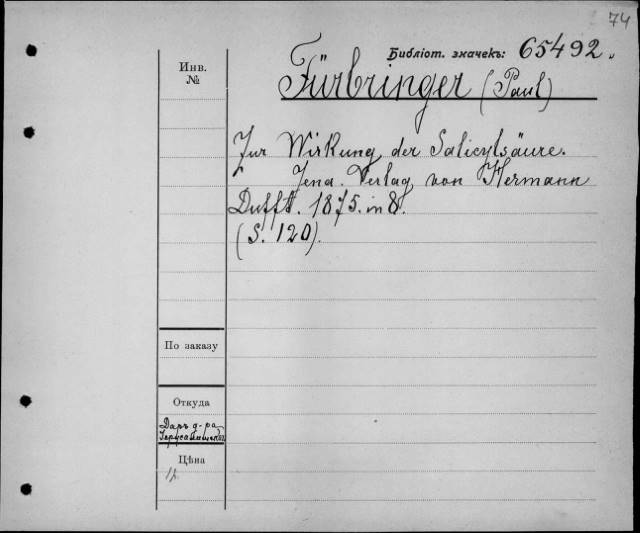 74
Библіот. значекъ: 65492.
Инв.
№
Fürbringer (Paul)
Zur Wirkung der Salicylsäure.
Jena. Verlag von Hermann
Dufft. 1875. in 8.
(S. 120).
По заказу
Откуда
Даръ д-ра
Цѣна